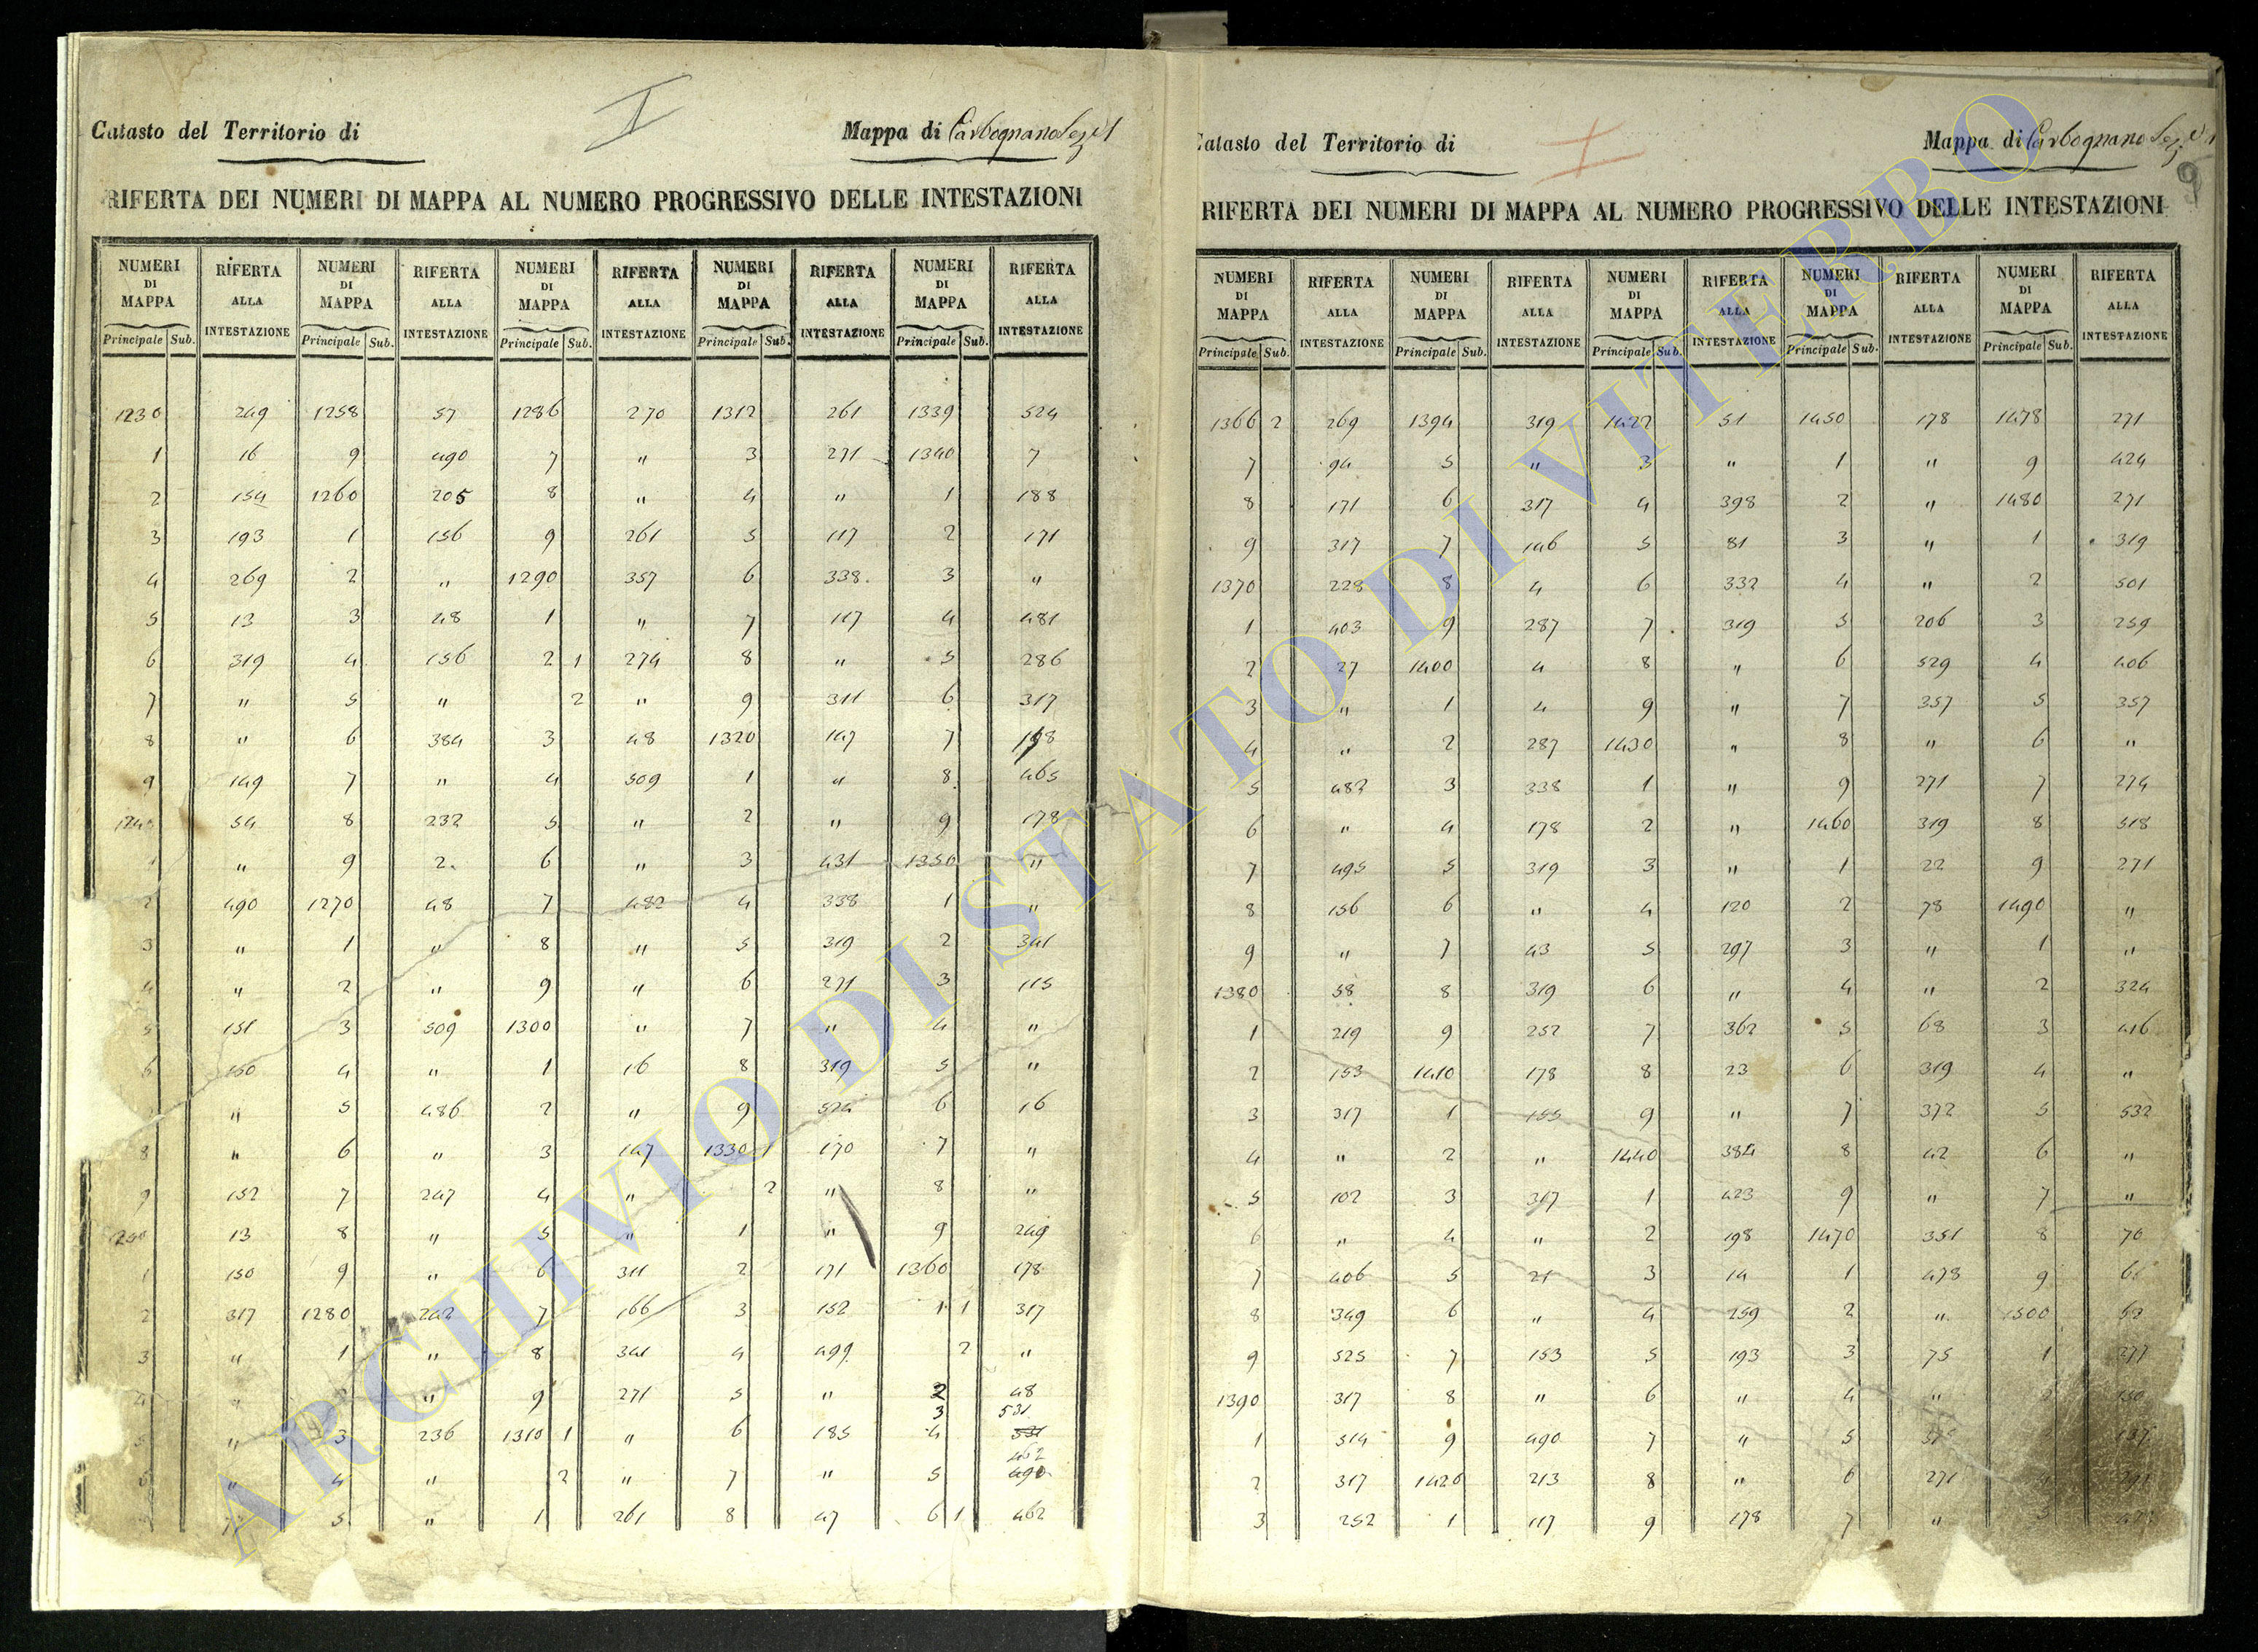 I
Catasto del Territorio di
Mappa di Carbognano Sez.e 1
RIFERTA DEI NUMERI DI MAPPA AL NUMERO PROGRESSIVO DELLE INTESTAZIONI
NUMERI DI MAPPA RIFERTA ALLA INTESTAZIONE NUMERI DI MAPPA RIFERTA ALLA INTESTAZIONE NUMERI DI MAPPA RIFERTA ALLA INTESTAZIONE NUMERI DI MAPPA RIFERTA ALLA INTESTAZIONE NUMERI DI MAPPA RIFERTA ALLA INTESTAZIONE
Principale Sub. Principale Sub. Principale Sub. Principale Sub. Principale Sub.
1230 249 1258 57 1286 270 1312 261 1339 524
1 16 9 490 7 " 3 271 1340 7
2 154 1260 205 8 " 4 " 1 188
3 193 1 156 9 261 5 117 2 171
4 269 2 " 1290 357 6 338 3 "
5 13 3 48 1 " 7 117 4 481
6 319 4 156 2 1 274 8 " 5 286
7 " 5 " 2 " 9 311 6 317
8 " 6 384 3 48 1320 147 7
9 149 7 " 4 509 1 " 8 465
54 8 232 5 " 2 " 9 178
" 9 2 6 " 3 431 1350 "
2 490 1270 48 7 482 4 338 1 "
3 " 1 " 8 " 5 319 2 341
4 " 2 " 9 " 6 271 3 115
5 151 3 509 1300 " 7 " 4 "
6 150 4 " 1 16 8 319 5 "
" 5 486 2 " 9 524 6 16
8 " 6 " 3 147 1330 1 170 7 "
9 152 7 247 4 " 2 " 8 "
13 8 " 5 " 1 " 9 249
1 150 9 " 6 311 2 171 1360 178
2 317 1280 242 7 166 3 152 1 1 317
3 " 1 " 8 341 4 499 2 "
4 " 2 " 9 271 5 " 2 48
3 531
5 " 3 236 1310 1 " 6 185 4 531
462
6 " 4 " 2 " 7 " 5 490
" 5 " 1 261 8 47 6 1 462
I
Catasto del Territorio di
Mappa di Carbognano Sez.e 1
9
RIFERTA DEI NUMERI DI MAPPA AL NUMERO PROGRESSIVO DELLE INTESTAZIONI
NUMERI DI MAPPA RIFERTA ALLA INTESTAZIONE NUMERI DI MAPPA RIFERTA ALLA INTESTAZIONE NUMERI DI MAPPA RIFERTA ALLA INTESTAZIONE NUMERI DI MAPPA RIFERTA ALLA INTESTAZIONE NUMERI DI MAPPA RIFERTA ALLA INTESTAZIONE
Principale Sub. Principale Sub. Principale Sub. Principale Sub. Principale Sub.
1366 2 269 1394 319 1422 51 1450 178 1478 271
7 94 5 " 3 " 1 " 9 424
8 171 6 317 4 398 2 " 1480 271
9 317 7 146 5 81 3 " 1 319
1370 228 8 4 6 332 4 " 2 501
1 403 9 287 7 319 5 206 3 259
2 27 1400 4 8 " 6 529 4 406
3 " 1 4 9 " 7 357 5 357
4 " 2 287 1430 " 8 " 6 "
5 482 3 338 1 " 9 271 7 274
6 " 4 178 2 " 1460 319 8 518
7 495 5 319 3 " 1 22 9 271
8 156 6 " 4 120 2 78 1490 "
9 " 7 43 5 297 3 " 1 "
1380 58 8 319 6 " 4 " 2 324
1 219 9 252 7 362 5 68 3 416
2 153 1410 178 8 23 6 319 4 "
3 317 1 155 9 " 7 372 5 532
4 " 2 " 1440 384 8 42 6 "
5 102 3 317 1 423 9 " 7 "
6 " 4 " 2 198 1470 351 8 76
7 406 5 21 3 14 1 478 9
8 349 6 " 4 259 2 " 1500
9 525 7 153 5 193 3 75 1 277
1390 317 8 " 6 " 4 "
1 514 9 490 7 " 5
2 317 1420 213 8 " 6 271
3 252 1 117 9 178 7 "
ARCHIVIO DI STATO DI VITERBO